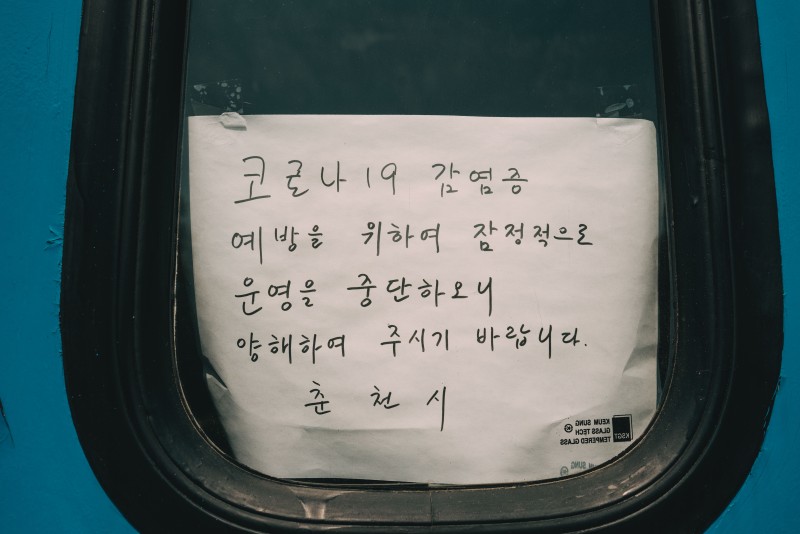 코로나19 감염증
예방을 위하여 잠정적으로
운영을 중단하오니
양해하여 주시기 바랍니다.
춘천시
KEUM SUNG
GLASS TECH
TEMPERED GLASS
KSGT
KEUM SUNG